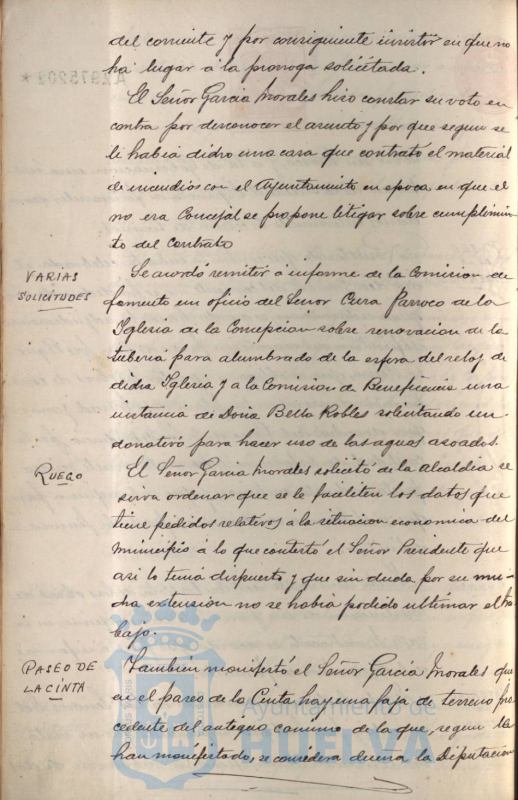 del corriente y por consiguiente insistir en que no
ha lugar a la prorroga solicitada.
El Señor Garcia Morales hizo constar su voto en
contra por desconocer el asunto y por que segun se
le habia dicho una casa que contrató el material
de incendios con el Ayuntamiento en epoca en que el
no era Concejal se propone litigar sobre cumplimien
to del contrato
VARIAS
SOLICITUDES
Se acordó remitir á informe de la Comision de
fomento un oficio del Señor Cura Parroco de la
Iglesia de la Concepcion sobre renovacion de la
tuberia para alumbrado de la esfera del reloj de
dicha Iglesia y a la Comision de Beneficencia una
instancia de Doña Bella Robles solicitando un
donativo para hacer uso de las aguas
RUEGO
El Señor Garcia Morales solicitó de la Alcaldia se
sirva ordenar que se le faciliten los datos que
tiene pedidos relativos á la situacion economica del
Municipio á lo que contestó el Señor Presidente que
asi lo tenia dispuesto y que sin duda por su mu-
cha extension no se habia podido ultimar el tra
bajo.
PASEO DE
LA CINTA
Tambien manifestó el Señor Garcia Morales que
en el paseo de la Cinta hay una faja de terreno pro
cedente del antiguo camino de la que, segun le
han manifestado, se considera dueña la Diputacion
Ayuntamiento de
HUELVA